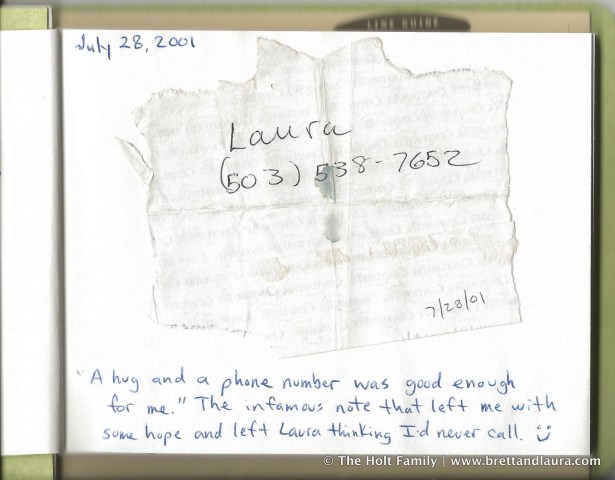 LINE GUIDE
July 28, 2001
Laura
(503) 538-7652
7/28/01
"A hug and a phone number was good enough
for me." The infamous note that left me with
some hope and left Laura thinking I'd never call. :)
© The Holt Family | www.brettandlaura.com